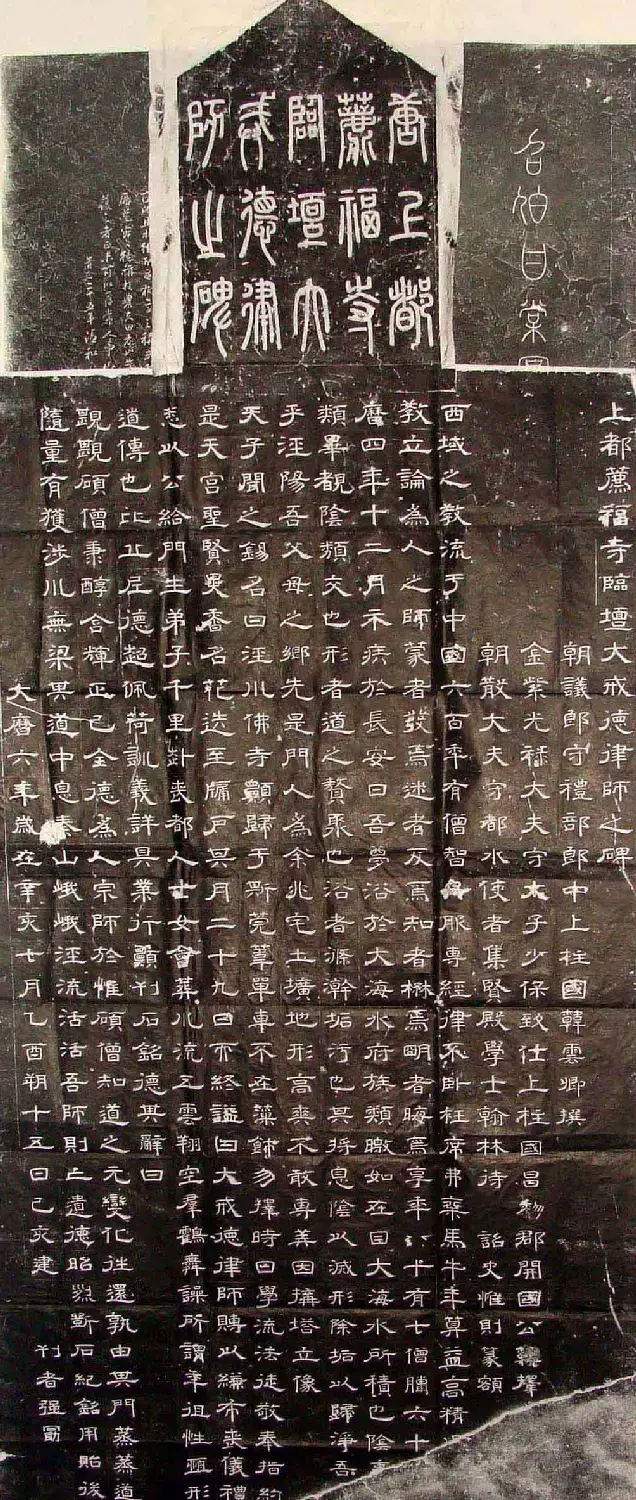 唐上都
薦福寺
臨壇大
戒德律
師之碑
召伯甘棠
上都薦福寺臨壇大戒德律師之碑
朝議郎守禮部郎中上柱國韓雲卿撰
金紫光祿大夫守太子少保致仕上柱國昌黎郡開國公韓擇
朝散大夫守都水使者集賢殿學士翰林待 詔史惟則篆額
西域之教流于中國六百年有僧智舟服專經律不卧枉席弗乘馬牛年算益高精
教立論為人之師蒙者發焉迷者反焉知者楙焉明者晦焉享年八十有七僧臘六十
曆四年十二月示疾於長安曰吾夢浴於大海水府族類瞰如在目大海水所積也陰
類畢覩陰類交也形者道之贅乘也浴者滌澣垢汙也其將息陰以滅形除垢以歸淨吾
乎涇陽吾父母之鄉先是門人為余兆宅土壙地形高爽不敢專美因搆塔立像
天子聞之錫名曰涇川佛寺顥歸于斯莞葦單車不在藻飾勿擇時日學流法徒敬奉指約
是天宮聖賢異香名花迭至牖戶其月二十九日而終謚曰大戒德律師賻以縑布喪儀禮
悉以公給門生弟子千里赴喪都人士女會葬川流五雲翔空群鶴舞譟所謂率徂性甄形
道傳也比丘尼德超佩荷訓義詳具業行顥刊石銘德其辭曰
覭覭碩僧秉醇含輝正己全德為人宗師於惟碩僧知道之元變化往還孰由其門蒸蒸道
隨量有獲涉川無梁其道中息秦山峨峨涇流活活吾師則亡遺德昭烈斲石紀銘用貽後
大曆六年歲在辛亥七月乙酉朔十五日己亥建 刊者強